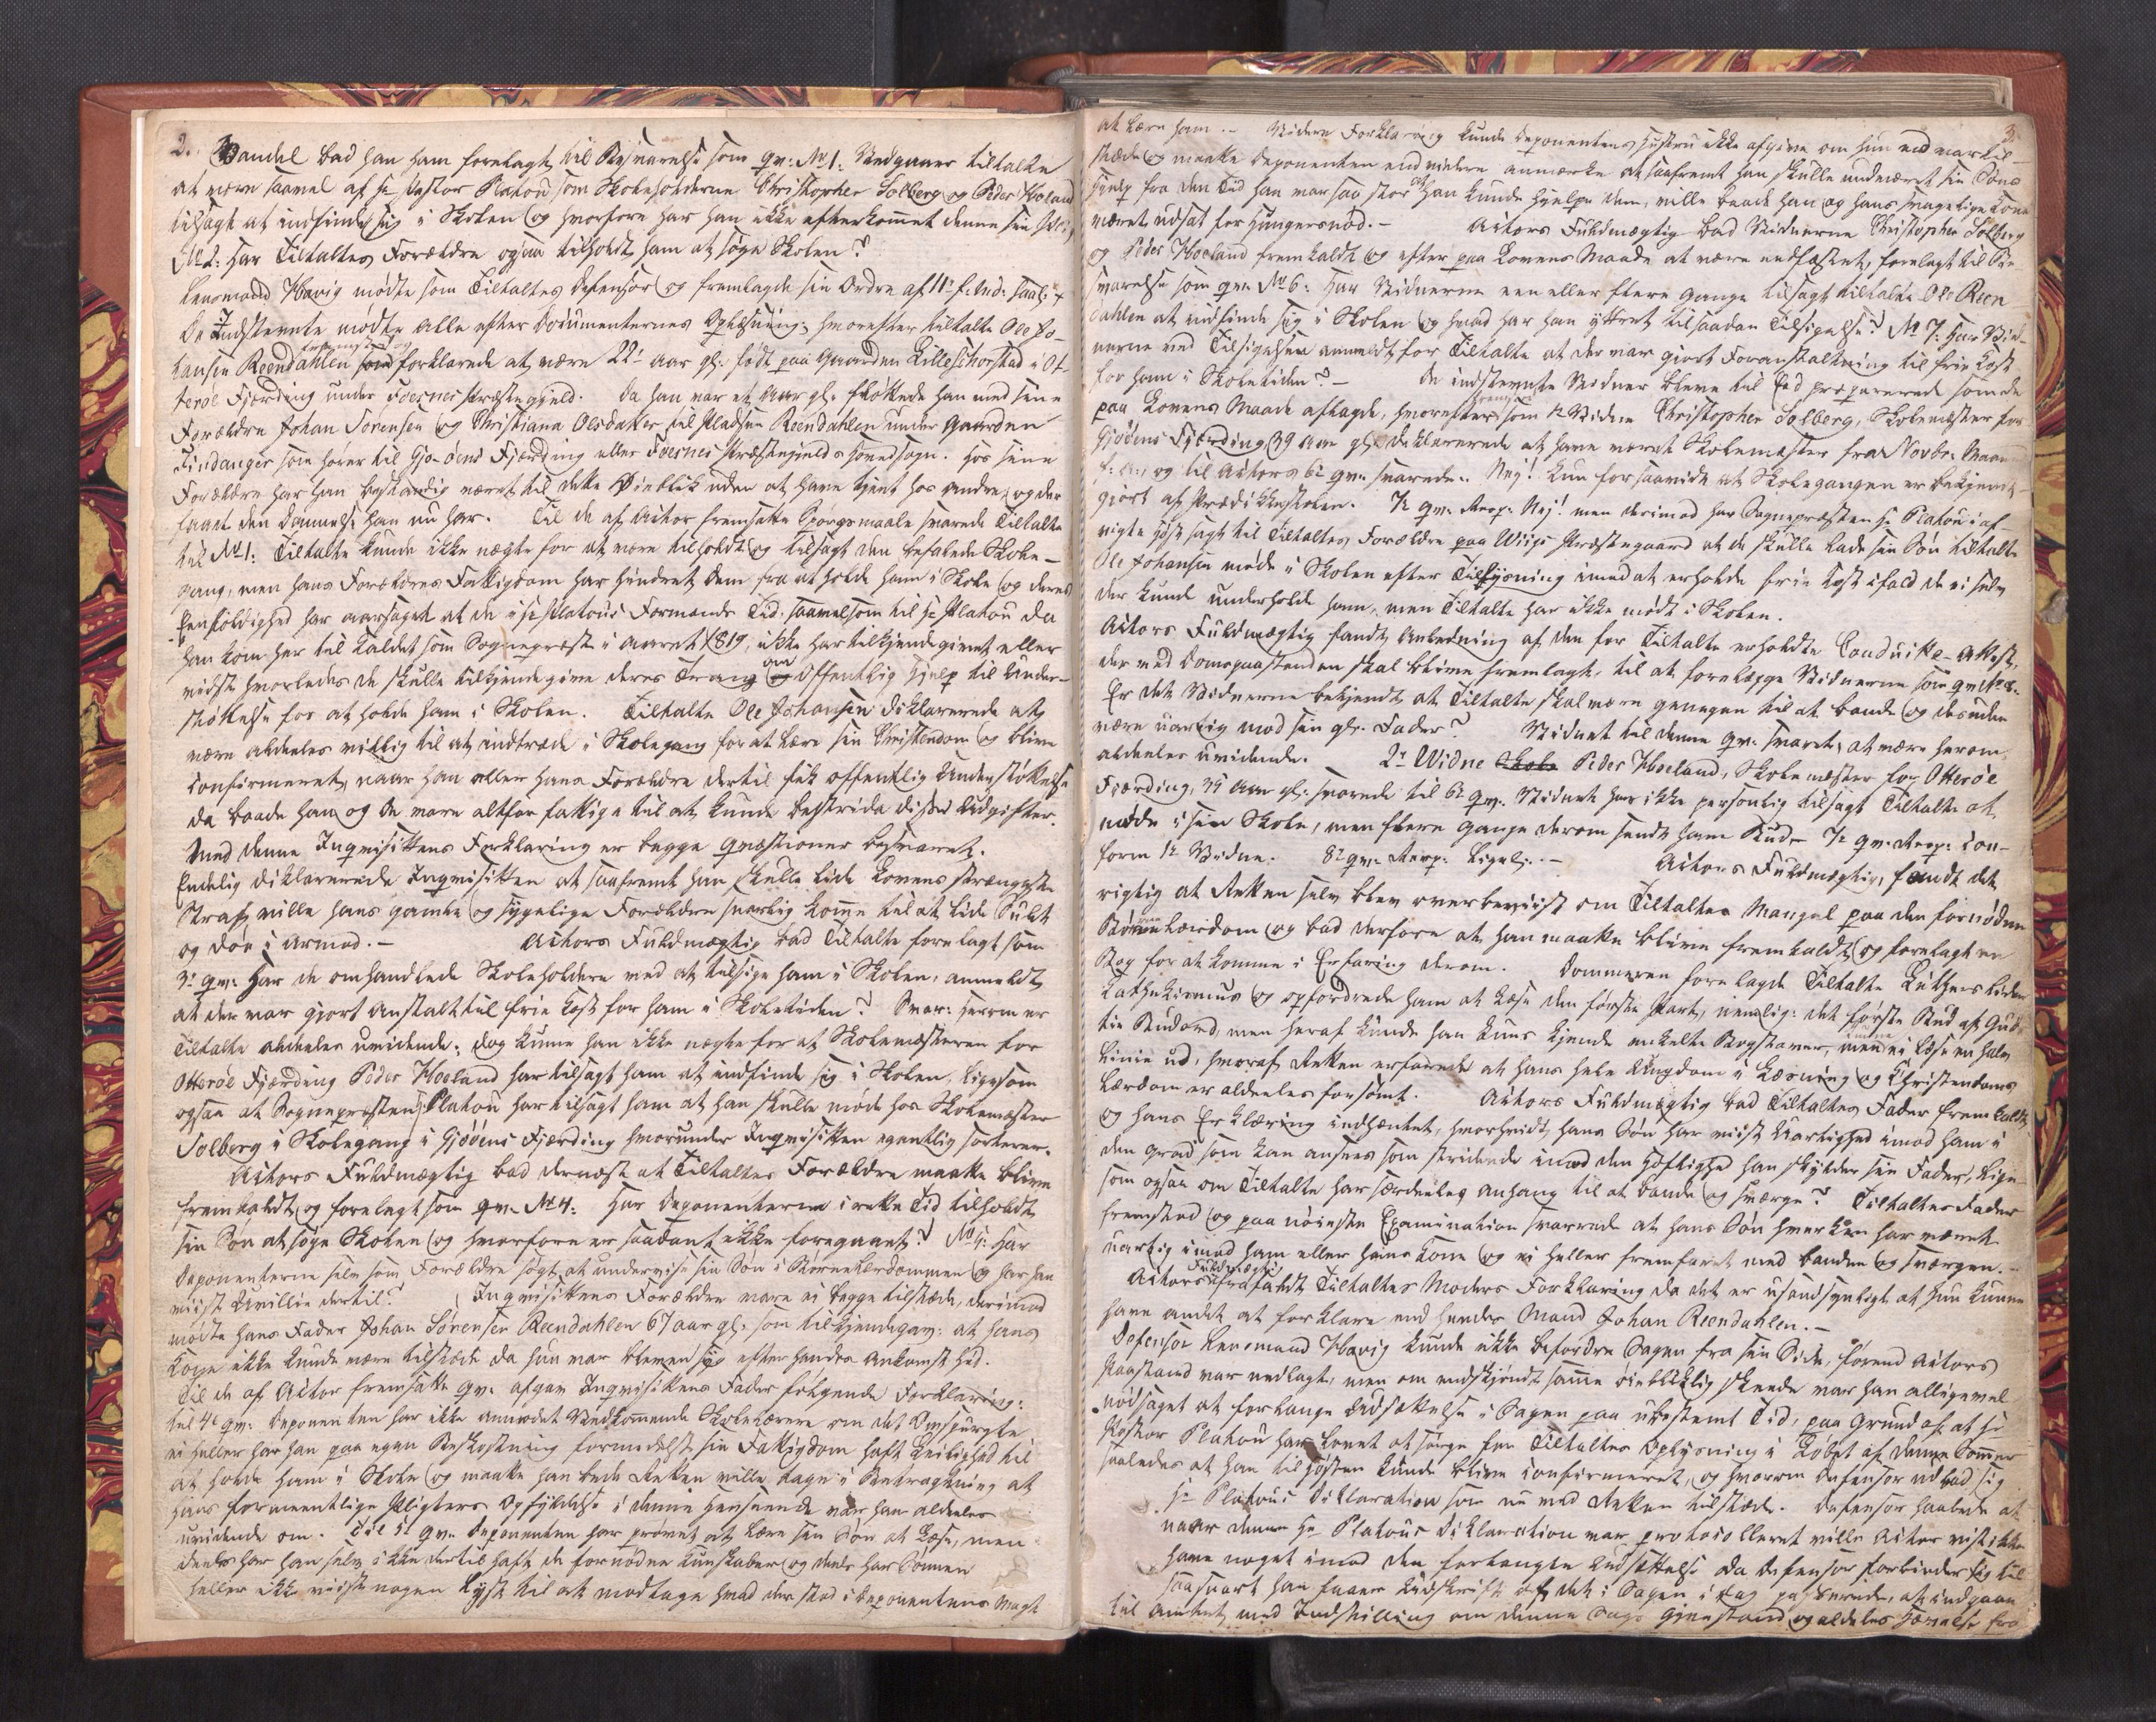 2.
Vandel bad han ham forelagt til Besvarelse som qv: No 1: Vedgaaer tiltalte
at være saavel af Hr Pastor Platou som Skoleholderne Christopher Solberg og Peder Hoeland
tilsagt at indfinde sig i Skolen og hvorfore har han ikke efterkommet denne sin Pligt
No 2: Har Tiltaltes Forældre ogsaa tilholdt ham at søge Skolen?
Lensmand Havig mødte som Tiltaltes Defensor og fremlagde sin Ordre af 11te f: Md: saal:
De Indstevnte mødte alle efter Documenternes Oplæsning; hvorefter tiltalte Ole Jo-
hansen Reendahlen fremstod og forklarede at være 22 Aar gl: født paa Gaarden Lilleschorstad i Ot-
terøe Fjerding under Foesnes Præstegjeld. Da han var et Aar gl: fløttede han med sine
Forældre Johan Sørensen og Christiana Olsdatter til Pladsen Reendahlen under Gaarden
Findanger som hører til Gjøøens Fjerding eller Foesnes Præstegjelds Hovedsogn. Hos sine
Forældre har han bestandig været til dette Øieblik uden at have tjent hos andre, og der
faaet den Dannelse han nu har. Til de af Actor fremsatte Spørgsmaale svarede Tiltalte
til No 1: Tiltalte kunde ikke nægte for at være tilholdt og tilsagt den befalede Skole-
gang, men hans Forældres Fattigdom har hindret dem fra at holde ham i Skole og deres
Eenfoldighed har aarsaget at de i Hr Platous Formands Tid, saavelsom til Hr Platou da
han kom her til Kaldet som Sognepræst i Aaret 1819, ikke har tilkjendegivet eller
vidste hvorledes de skulde tilkjendegive deres Trang om Offentlig Hjelp til Under-
støttelse for at holde ham i Skolen. Tiltalte Ole Johansen declarerede at
være aldeles villig til at indtræde i Skolegang for at lære sin Christendom og blive
confirmeret, naar han eller hans Forældre dertil fik offentlig Understøttelse
da baade han og de vare altfor fattige til at kunde bestride disse Udgifter.
Med denne Inqvisittens Forklaring er begge qvæstioner besvaret.
Endelig declarerede Inqvisitten at saafremt han skulle lide Lovens strængeste
Straf, ville hans gamle og sygelige Forældre snarlig komme til at lide Sult
og døe i Armod. — Actors Fuldmægtig bad Tiltalte forelagt som
3die qv: Har de omhandlede Skoleholdere med at tilsige ham i Skolen, anmeldt
at der var gjort Anstalt til frie Kost for ham i Skoletiden? Svar: herom er
Tiltalte aldeles uvidende; dog kunne han ikke nægte for at Skolemesteren for
Otterøe Fjerding Peder Hoeland har tilsagt ham at indfinde sig i Skolen, ligesom
ogsaa at Sognepræsten Hr Platou har tilsagt ham at han skulle møde hos Skolemester
Solberg i Skolegang i Gjøøens Fjerding hvorunder Inqvisitten egentlig sorterer.
Actors Fuldmægtig bad dernæst at Tiltaltes Forældre maatte blive
fremkaldt og forelagt som qv: No 4: Har Deponenterne i rette Tid tilholdt
sin Søn at søge Skolen og hvorfore er saadant ikke foregaaet? No 5: Har
Deponenterne selv som Forældre søgt at undervise sin Søn i Børnelærdommen og har han
viist Uvillie dertil? Inqvisittens Forældre vare ei begge tilstæde, derimod
mødte hans Fader Johan Sørensen Reendahlen 67 Aar gl: som tilkjendegav: at hans
Kone ikke kunde være tilstæde da hun var bleven syg efter hendes Ankomst hid.
Til de af Actor fremsatte qv: afgav Inqvisittens Fader følgende Forklaring:
til 4de qv: Deponenten har ikke anmodet Vedkommende Skolelærere om det Omspurgte
ei heller har han paa egen Bekostning formedelst sin Fattigdom haft Leilighed til
at holde ham i Skole og maatte han bede Retten ville tage i Betragtning at
hans formeentlige Pligters Opfyldelse i denne Henseende var han aldeles
uvidende om. Til 5te qv: Deponenten har prøvet at lære sin Søn at læse, men
deels har han selv ikke dertil haft de fornødne Kundskaber og deels har Sønnen
heller ikke viist nogen Lyst til at modtage hvad der stod i Deponentens Magt
3.
at lære ham. — Videre Forklaring kunde Deponentens Hustru ikke afgive om hun end var til-
stæde og maatte Deponenten end videre anmærke at saafremt han skulle undværet sin Søns
Hjelp fra den Tid han var saa stor at han kunde hjelpe dem, ville baade han og hans svagelige Kone
været udsat for Hungersnød. — Actors Fuldmægtig bad Vidnerne Christopher Solberg
og Peder Hoeland fremkaldt og efter paa Lovens Maade at være eedfæstet, forelagt til Be-
svarelse som qv: No 6: Har Vidnerne een eller flere Gange tilsagt tiltalte Ole Reen-
dahlen at indfinde sig i Skolen og hvad har han yttret til saadan Tilsigelse? No 7: Har Vid-
nerne ved Tilsigelsen anmeldt for Tiltalte at der var gjort Foranstaltning til frie Kost
for ham i Skoletiden? — De indstevnte Vidner bleve til Eed præparerede som de
paa Lovens Maade aflagde, hvorefter fremstod som 1te Vidne Christopher Solberg, Skolemester for
Gjøøens Fjerding 39 Aar gl: declarerede at have været Skolemester fra Novbr. Maaned
f: A:, og til Actors 6te qv: svarede: Nej! kun forsaavidt at Skolegangen er bekjendt-
gjort af Prædikestolen. 7de qv: Resp: Nej! men derimod har Sognepræsten Hr Platou i af-
vigte Høst sagt til Tiltaltes Forældre paa Wiigs Præstegaard at de skulle lade sin Søn tiltalte
Ole Johansen møde i Skolen efter Tillysning imod at erholde frie Kost ifald de ei selv
der kunde underholde ham, men Tiltalte har ikke mødt i Skolen.
Actors Fuldmægtig fandt Anledning af den for Tiltalte erholdte Conduite-Attest,
der med Domspaastanden skal blive fremlagt, til at forelægge Vidnerne som qv: No 8:
Er det Vidnerne bekjendt at Tiltalte skal være genegen til at bande og desuden
være uartig mod sin gl: Fader? Vidnet til denne qv: svaret, at være herom
aldeles uvidende. 2de Widne Peder Hoeland, Skolemester for Otterøe
Fjerding, 35 Aar gl: svarede til 6te qv: Vidnet har ikke personlig tilsagt Tiltalte at
møde i sin Skole, men flere Gange derom sendt ham Bud. 7de qv: Resp: con-
form 1te Vidne. 8de qv: Resp: Ligel: — Actors Fuldmægtig fandt det
rigtig at Retten selv blev overbeviist om Tiltaltes Mangel paa den fornødne
Børnelærdom og bad derfore at han maatte blive fremkaldt og forelagt en
Bog for at komme i Erfaring derom. Dommeren forelagde Tiltalte Luthers lidle
Kathekismus og opfordrede ham at læse den første Part, nemlig: det første Bud af Guds
tie Budord, men heraf kunde han kuns kjende enkelte Bogstaver, men ei kunne læse en halv
Linie ud, hvoraf Retten erfarede at hans hele Ungdom i Læsning og Christendoms
Lærdom er aldeles forsømt. Actors Fuldmægtig bad Tiltaltes Fader fremkaldt
og hans Erklæring indhæntet, hvorhvidt hans Søn har viist Uartighed imod ham i
den Grad som kan ansees som stridende imod den Høflighed han skylder sin Fader, lige-
som ogsaa om Tiltalte har særdeles Anhang til at bande og sværge? Tiltaltes Fader
fremstod og paa nøieste Examination svarede at hans Søn hverken har været
uartig imod ham eller hans Kone og ei heller fremfaret med Banden og Sværgen. —
Actors Fuldmægtig frafaldt Tiltaltes Moders Forklaring da det er usandsynligt at hun kunne
have andet at forklare end hendes Mand Johan Reendahlen. —
Defensor Lensmand Havig kunde ikke befordre Sagen fra sin Side, førend Actors
Paastand var nedlagt, men om endskjøndt samme øieblikklig skeede var han alligevel
nødsaget at forlange Udsættelse i Sagen paa ubestemt Tid, paa Grund af at Hr
Pastor Platou har lovet at sørge for Tiltaltes Oplysning i Løbet af denne Sommer
saaledes at han til Høsten kunde blive confirmeret, og hvorom Defensor udbad sig
Hr Platous Declaration som nu ved Retten tilstæde. Defensor haabede at
naar denne Hr Platous Declaration var protocolleret ville Actor vist ikke
have noget imod den forlangte Udsættelse da Defensor forbinder sig til
saasnart han faaer Udskrift af det i Sagen i dag passerede, at indgaae
til Amtet med Indstilling om denne Sags Gjenstand og aldeles Hævelse fra